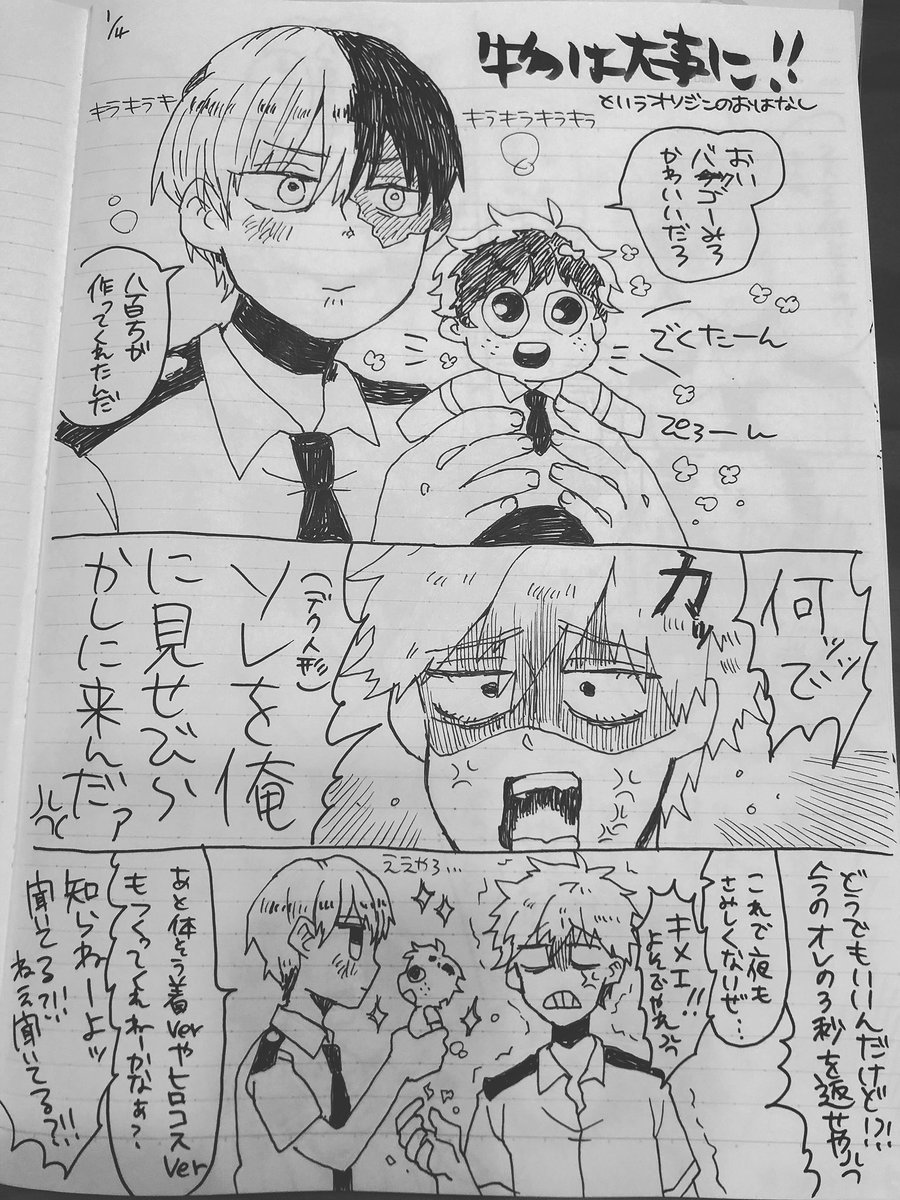 1/4
物は大事に!!
というオソジンのおはなし
キラキラキ
キラキラキラキラ
おい
バクゴーみろ
かわいいだろ
八百万が
作ってくれたんだ
でくたーん
ぴろーん
何ッッ
でッ
カッ
(デク人形)
ソレを俺
に見せびら
かしに来んだァ
どうでもいいんだけど!?!
今のオレの3秒を返せやッ
これで夜も
さみしくないぜ…
キメエ!!
ええやろ…
あと体そう着
verやヒロコスver
もつくってくれねーかなぁ?
知らねーよッ
聞いてる?!!
ねえ聞いてる?!!